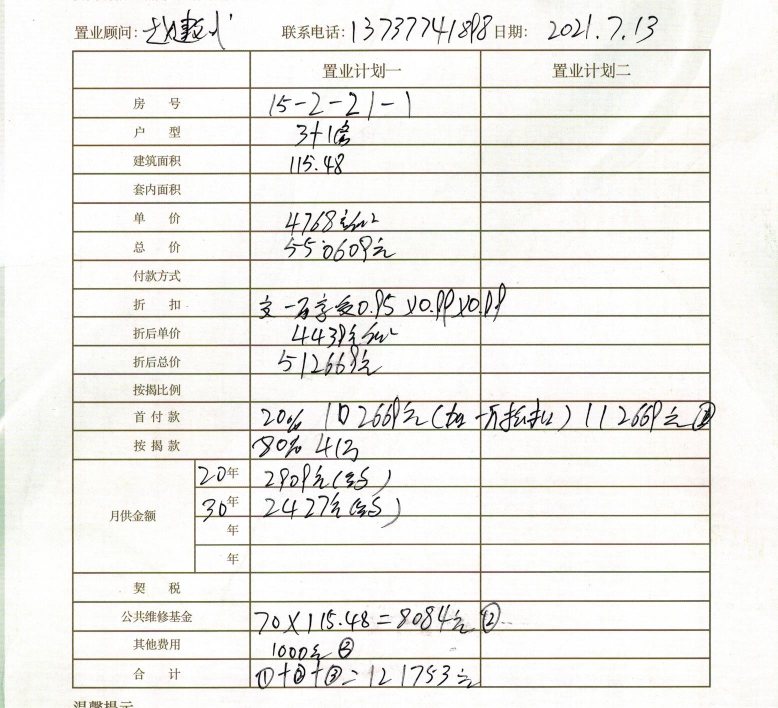 置业顾问: 赵建 联系电话: 13737741898 日期: 2021.7.13
置业计划一 置业计划二
房号 15-2-21-1
户型 3+1房
建筑面积 115.48
套内面积
单价 4768元/m²
总价 550609元
付款方式
折扣 交一万享受0.95×0.99×0.99
折后单价 4439元/m²
折后总价 512669元
按揭比例
首付款 20% 102669元(加一万) 112669元①
按揭款 80% 41万
月供金额
20年 2909元
30年 2427元
年
年
契税
公共维修基金 70×115.48=8084元②
其他费用 1000元③
合计 ①+②+③=121753元
温馨提示